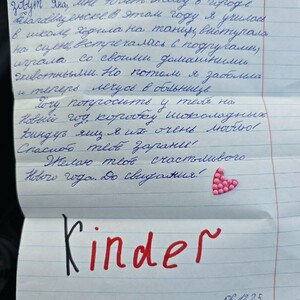 зовут Яна, мне
в городе
в этом году я училась
в школе, ходила на танцы, выступала
на сцене, встречалась с подругами,
играла со своими домашними
животными. Но потом я заболела
и теперь лежу в больнице.
Хочу попросить у тебя на
Новый год коробку шоколадных
киндер яиц, я их очень люблю!
Спасибо тебе заранее!
Желаю тебе счастливого
Нового года. До свидания!
Kinder